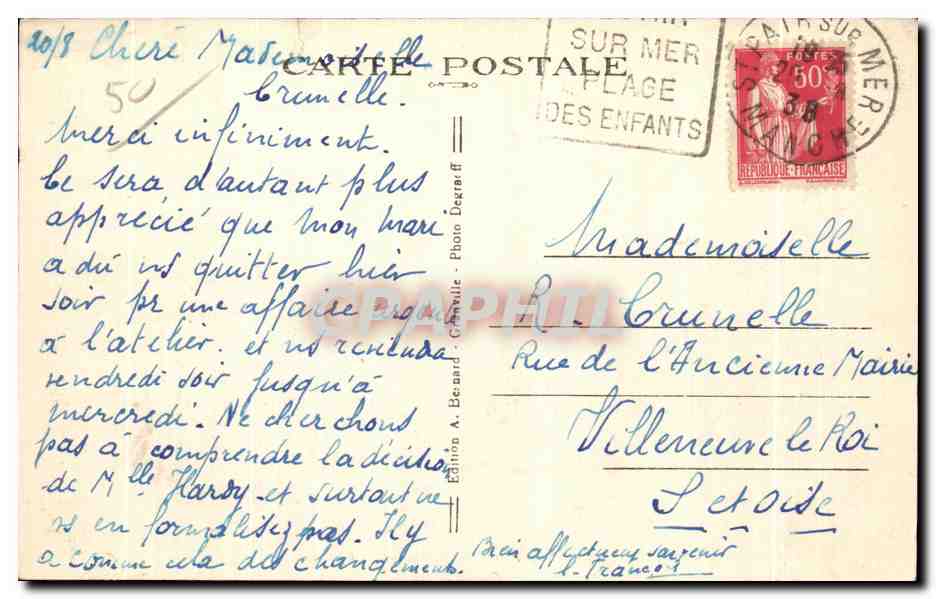 20/8 Chère Mademoiselle
Crunelle.
Merci infiniment.
Ce sera d'autant plus
apprécié que mon mari
a dû ns quitter hier
soir pr une affaire urgente
à l'atelier. et ns reviendra
vendredi soir jusqu'à
mercredi. Ne cherchons
pas à comprendre la décision
de Mlle Hardy et surtout ne
vs en formalisez pas. Il y
a comme cela des changements.
Bien affectueux souvenir
CARTE POSTALE
Edition A. Besnard - Granville - Photo Degraeff
SUR MER
PLAGE
DES ENFANTS
ST PAIR SUR MER
MANCHE
38
POSTES
50c
REPUBLIQUE-FRANCAISE
Mademoiselle
R. Crunelle
Rue de l'Ancienne Mairie
Villeneuve le Roi
S et Oise
50
CPAPHIL